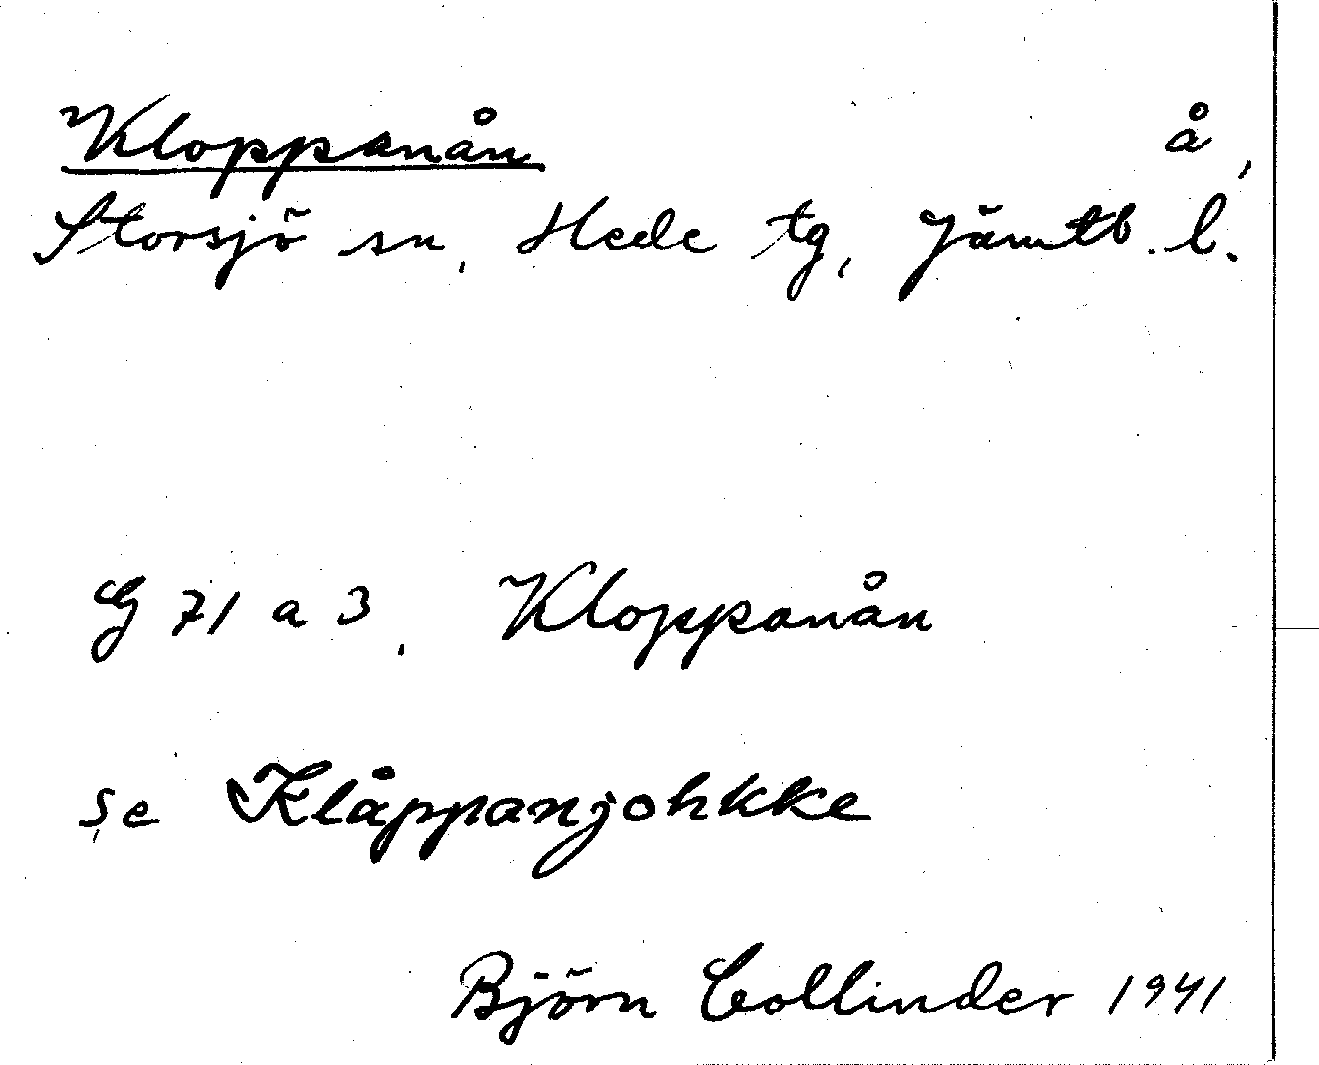 Kloppanån å,
Storsjö sn, Hede tg, Jämtl. l.
G 71 a 3, Kloppanån
se Klåppanjohkke
Björn Collinder 1941